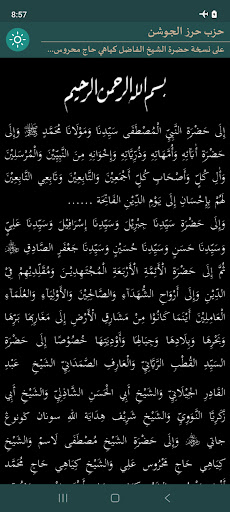 8:57
حزب حرز الجوشن
على نسخة حضرة الشيخ الفاضل كياهي حاج محروس...
بسم الله الرحمن الرحيم
إِلَى حَضْرَةِ النَّبِيِّ الْمُصْطَفَى سَيِّدِنَا وَمَوْلَانَا مُحَمَّدٍ ﷺ وَإِلَى
حَضْرَةِ أٰبَائِهِ وَأُمَّهَاتِهِ وَذُرِّيَّاتِهِ وَإِخْوَانِهِ مِنَ النَّبِيِّيْنَ وَالْمُرْسَلِيْنَ
وَأٰلِ كُلٍّ وَأَصْحَابِ كُلٍّ أَجْمَعِيْنَ وَالتَّابِعِيْنَ وَتَابِعِي التَّابِعِيْنَ
لَهُمْ بِإِحْسَانٍ إِلَى يَوْمِ الدِّيْنِ الْفَاتِحَة ......
وَإِلَى حَضْرَةِ سَيِّدِنَا جِبْرِيْلَ وَسَيِّدِنَا إِسْرَافِيْلَ وَسَيِّدِنَا عَلِيٍّ
وَسَيِّدِنَا حَسَنٍ وَسَيِّدِنَا حُسَيْنٍ وَسَيِّدِنَا جَعْفَرٍ الصَّادِقِ
ثُمَّ إِلَى حَضْرَةِ الْأَئِمَّةِ الْأَرْبَعَةِ الْمُجْتَهِدِيْنَ وَمُقَلِّدِيْهِمْ فِي
الدِّيْنِ وَإِلَى أَرْوَاحِ الشُّهَدَآءِ وَالصَّالِحِيْنَ وَالْأَوْلِيَآءِ وَالْعُلَمَآءِ
الْعَامِلِيْنَ أَيْنَمَا كَانُوْا مِنْ مَشَارِقِ الْأَرْضِ إِلَى مَغَارِبِهَا بَرِّهَا
وَبَحْرِهَا وَبِلَادِهَا وَجِبَالِهَا وَأَوْدِيَتِهَا خُصُوْصًا إِلَى حَضْرَةِ
السَّيِّدِ الْقُطْبِ الرَّبَّانِيِّ وَالْعَارِفِ الصَّمَدَانِيِّ الشَّيْخِ عَبْدِ
الْقَادِرِ الْجِيْلَانِيِّ وَالشَّيْخِ أَبِي الْحَسَنِ الشَّاذِلِيِّ وَالشَّيْخِ أَبِي
زَكَرِيَّا النَّوَوِيِّ وَالشَّيْخِ شَرِيْف هِدَايَةِ الله سونان كونوغ
جاتي وَإِلَى حَضْرَةِ الشَّيْخِ مُصْطَفَى لَاسم وَالشَّيْخِ
كِيَاهِي حَاج مَحْرُوْس عَلِي وَالشَّيْخِ كِيَاهِي حَاج مُحَمَّد